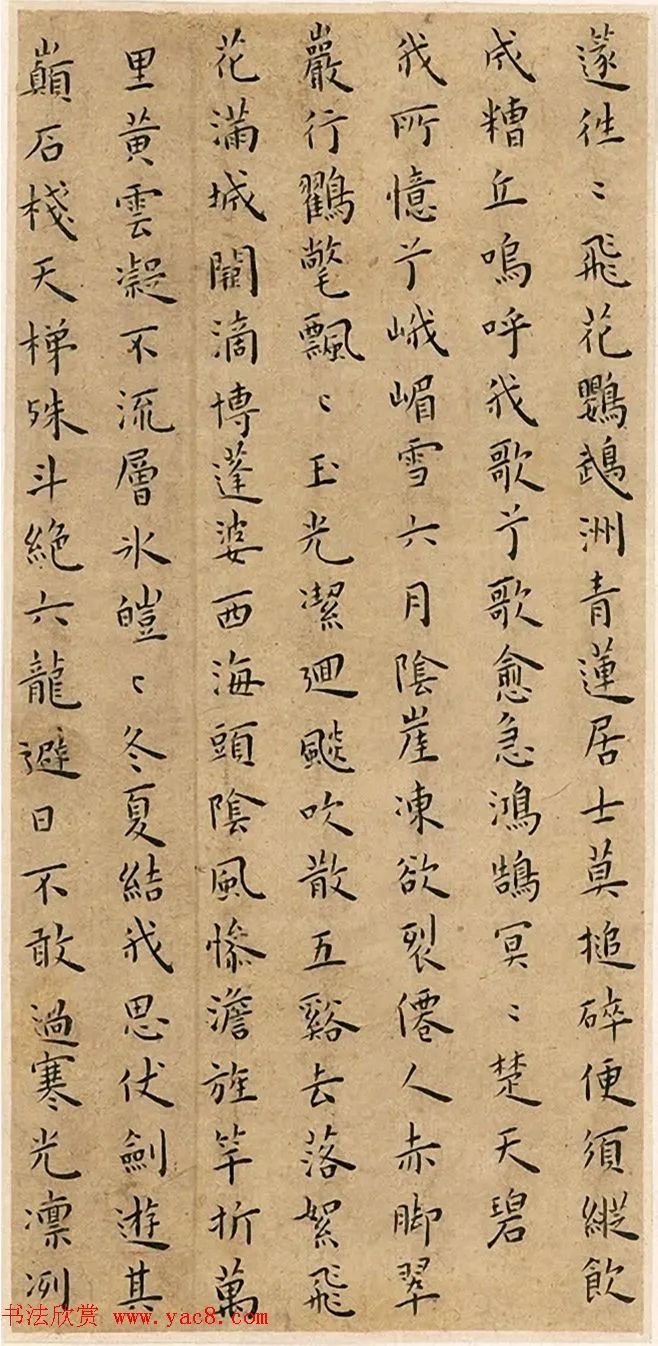 遂徃〻飛花鸚鵡洲青蓮居士莫搥碎便須縱飲
成糟丘嗚呼我歌兮歌愈急鴻鵠冥〻楚天碧
我所憶兮峨嵋雪六月陰崖凍欲裂僊人赤脚翠
巖行鸛氅飄〻玉光潔迴飈吹散五谿去落絮飛
花滿城闕滴博蓬婆西海頭陰風慘澹旌竿折萬
里黃雲凝不流層氷皚〻冬夏結我思伏劍遊其
巔石棧天梯殊斗絕六龍避日不敢過寒光凛冽
书法欣赏 www.yac8.com